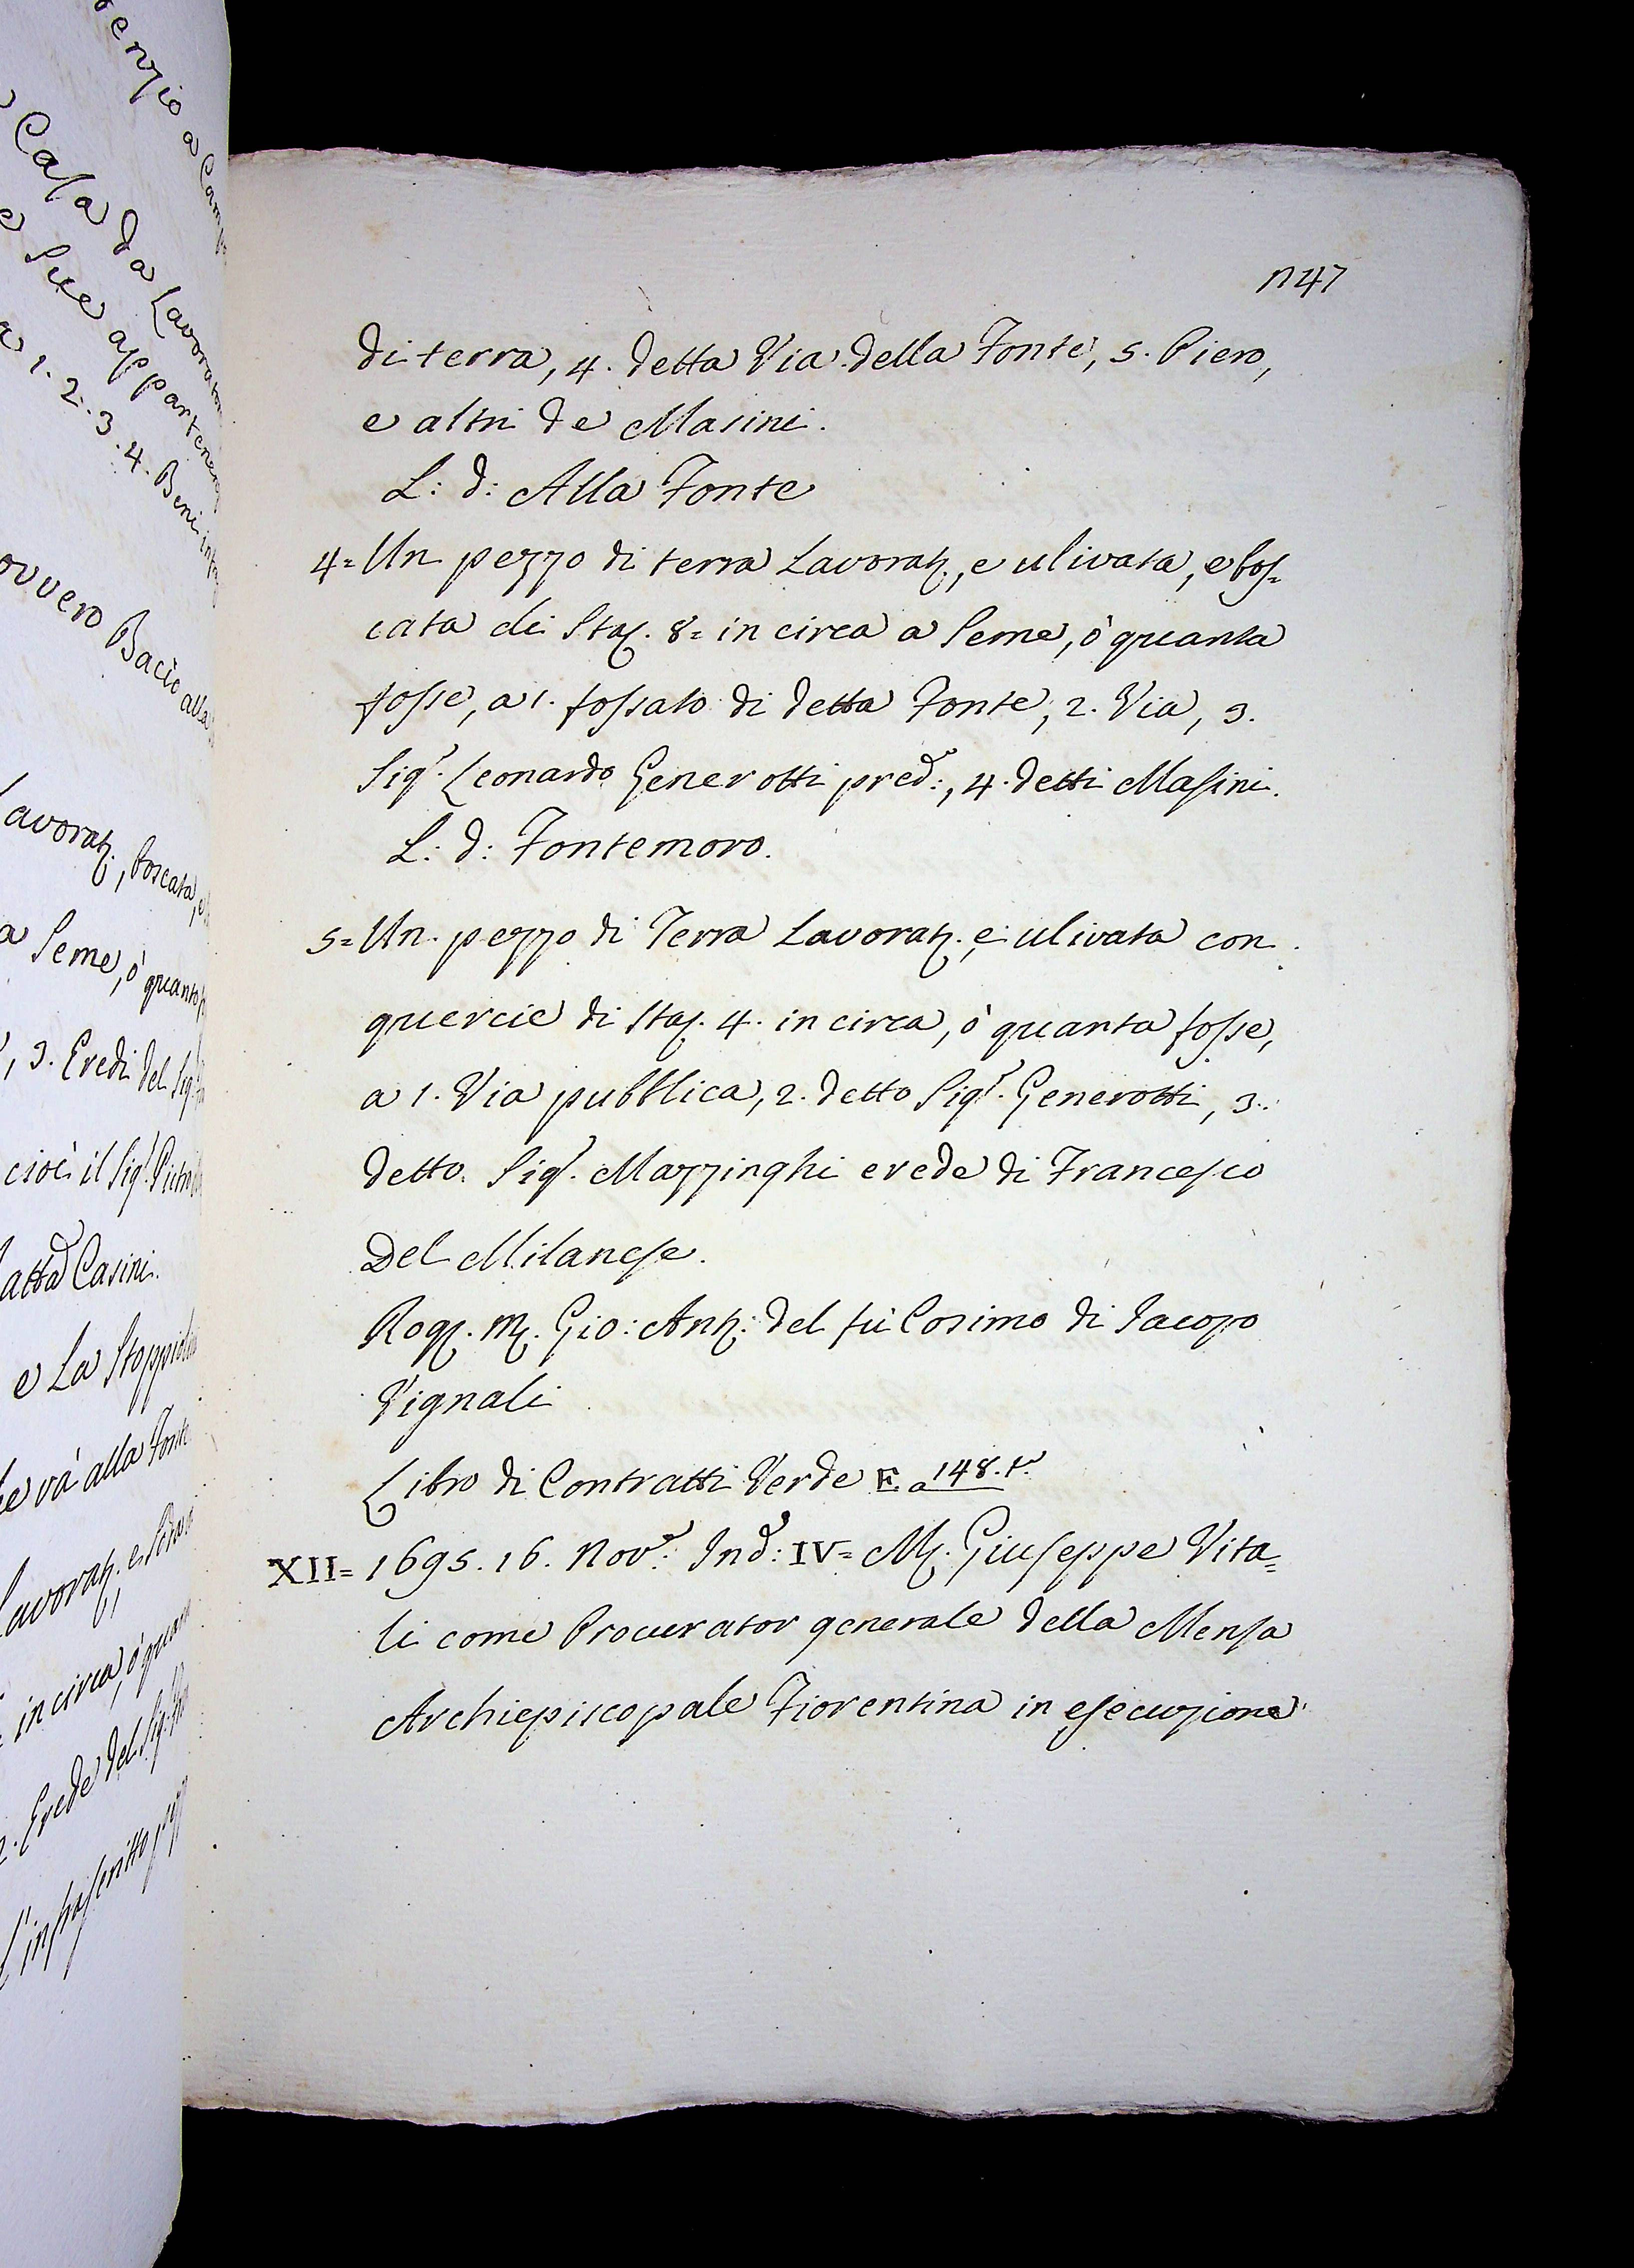 enzio a Camp
Casa da Lavorator
e sue appartenen
a 1. 2. 3. 4. Beni inf
ovvero Bacìo alla
Lavorat., boscata, e
a Seme, ò quanto
, 3. Eredi del Sig.
cioè il Sig.r
Casini.
e La Stoppiol
e và alla Fonte
Lavorat. e
in circa, ò quan
2. Erede del Sig.
l'infrascritto
n47
di terra, 4. detta Via della Fonte, 5. Piero,
e altri de Masini.
L: d: Alla Fonte
4= Un pezzo di terra Lavorat., e ulivata, e bos=
cata di Staj. 8= in circa a Seme, ò quanta
fosse, a 1. fossato di detta Fonte, 2. Via, 3.
Sig.r Leonardo Generotti pred:, 4. detti Masini.
L: d: Fontemoro.
5= Un pezzo di Terra Lavorat. e ulivata con
quercie di Staj. 4. in circa, ò quanta fosse,
a 1. Via pubblica, 2. detto Sig.r Generotti, 3.
detto Sig.r Mazzinghi erede di Francesco
Del Milanese.
Rog. M. Gio: Ant: del fù Cosimo di Jacopo
Vignali
Libro di Contratti Verde E a 148. t.o
XII= 1695. 16. Nov.e Ind: IV= M. Giuseppe Vita=
li come Procurator generale della Mensa
Archiepiscopale Fiorentina in esecuzione